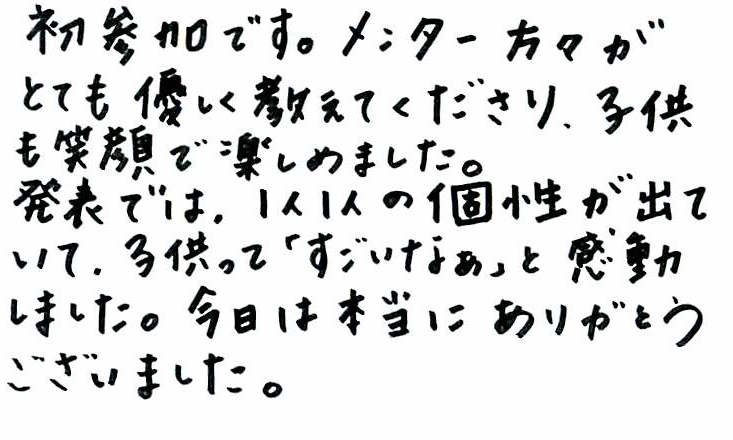 初参加です。メンター方々が
とても優しく教えてくださり、子供
も笑顔で楽しめました。
発表では、1人1人の個性が出て
いて、子供って「すごいなぁ」と感動
しました。今日は本当にありがとう
ございました。